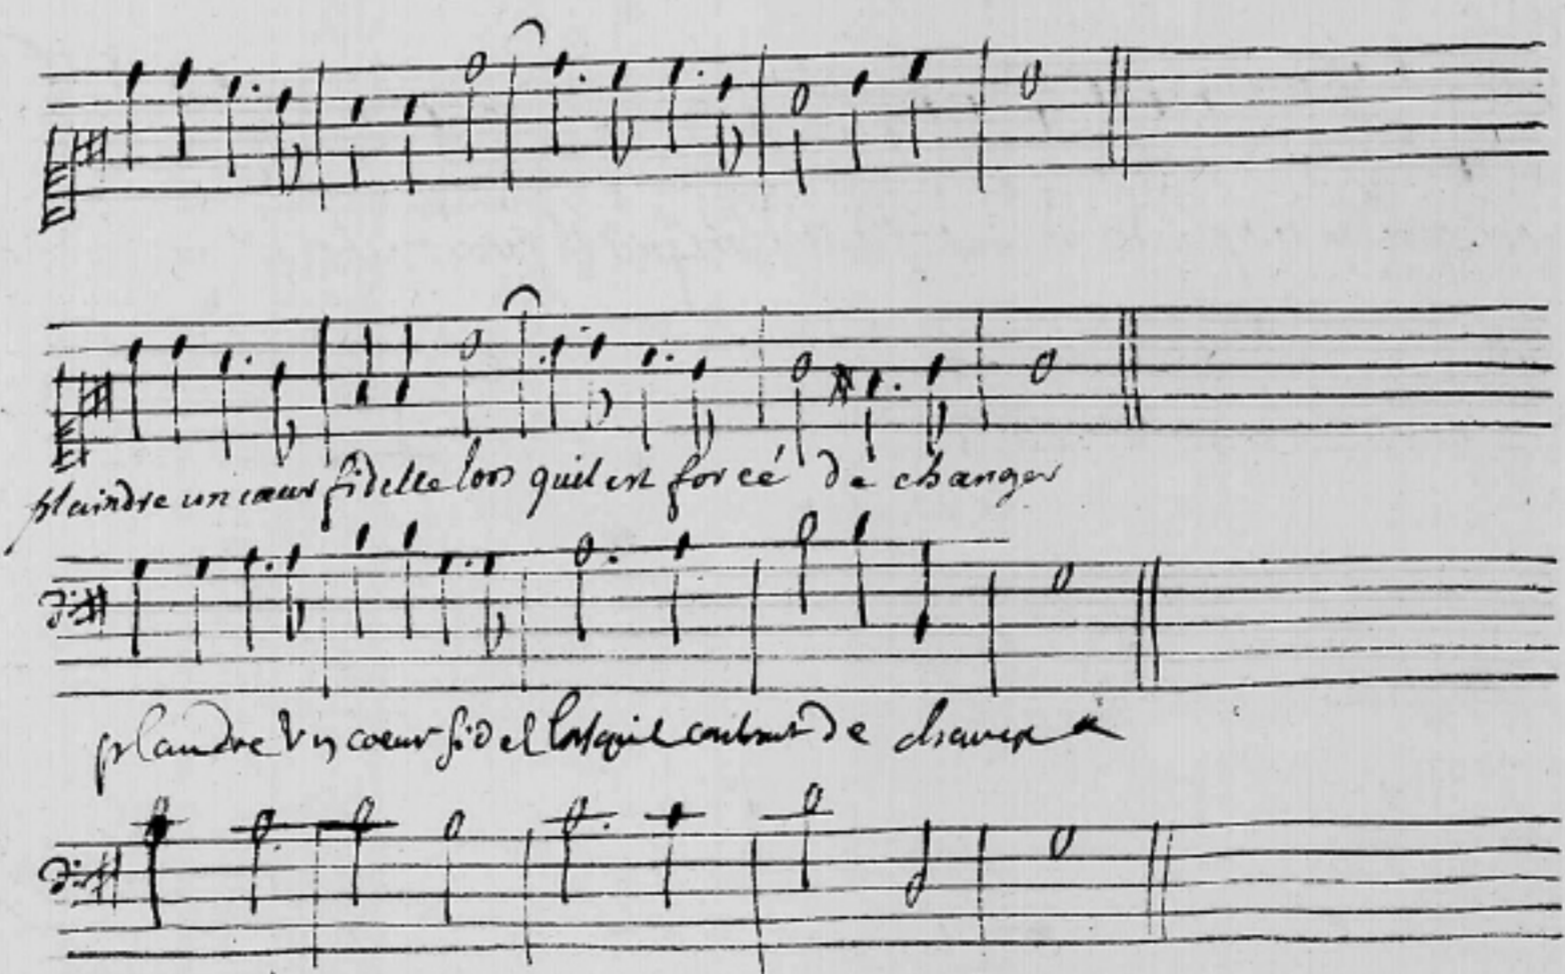 plaindre un cœur fidelle lors quil est forcé de changer
plaindre Un coeur fidel lorsquil de